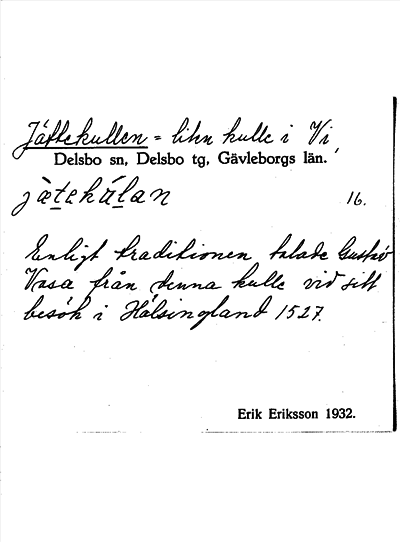 Jättekullen = liten kulle i Vi,
Delsbo sn, Delsbo tg, Gävleborgs län.
jætekálan 16.
Enligt traditionen talade Gustav
Vasa från denna kulle vid sitt
besök i Hälsingland 1527.
Erik Eriksson 1932.